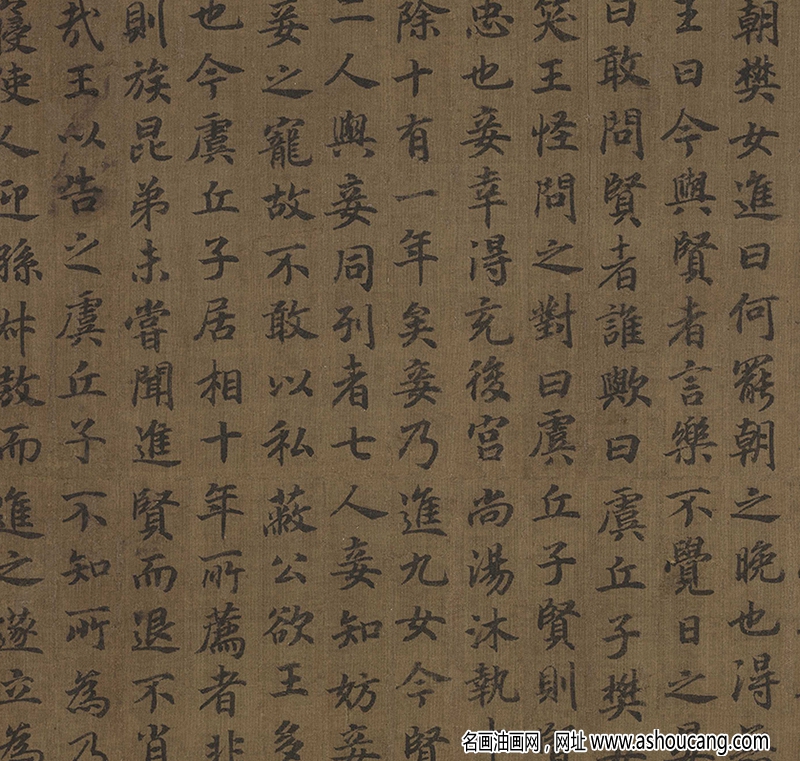 朝樊女進曰何罷朝之晚也得
王曰今與賢者言樂不覺日之晏
曰敢問賢者誰歟曰虞丘子樊
笑王怪問之對曰虞丘子賢則賢
忠也妾幸得充後宮尚湯沐執
除十有一年矣妾乃進九女今賢
二人與妾同列者七人妾知妨妾
妾之寵故不敢以私蔽公欲王多
也今虞丘子居相十年所薦者非
則族昆弟未嘗聞進賢而退不肖
哉王以告之虞丘子不知所為乃
使人迎孫叔敖而進之遂立為
名画油画网，网址 www.ashoucang.com